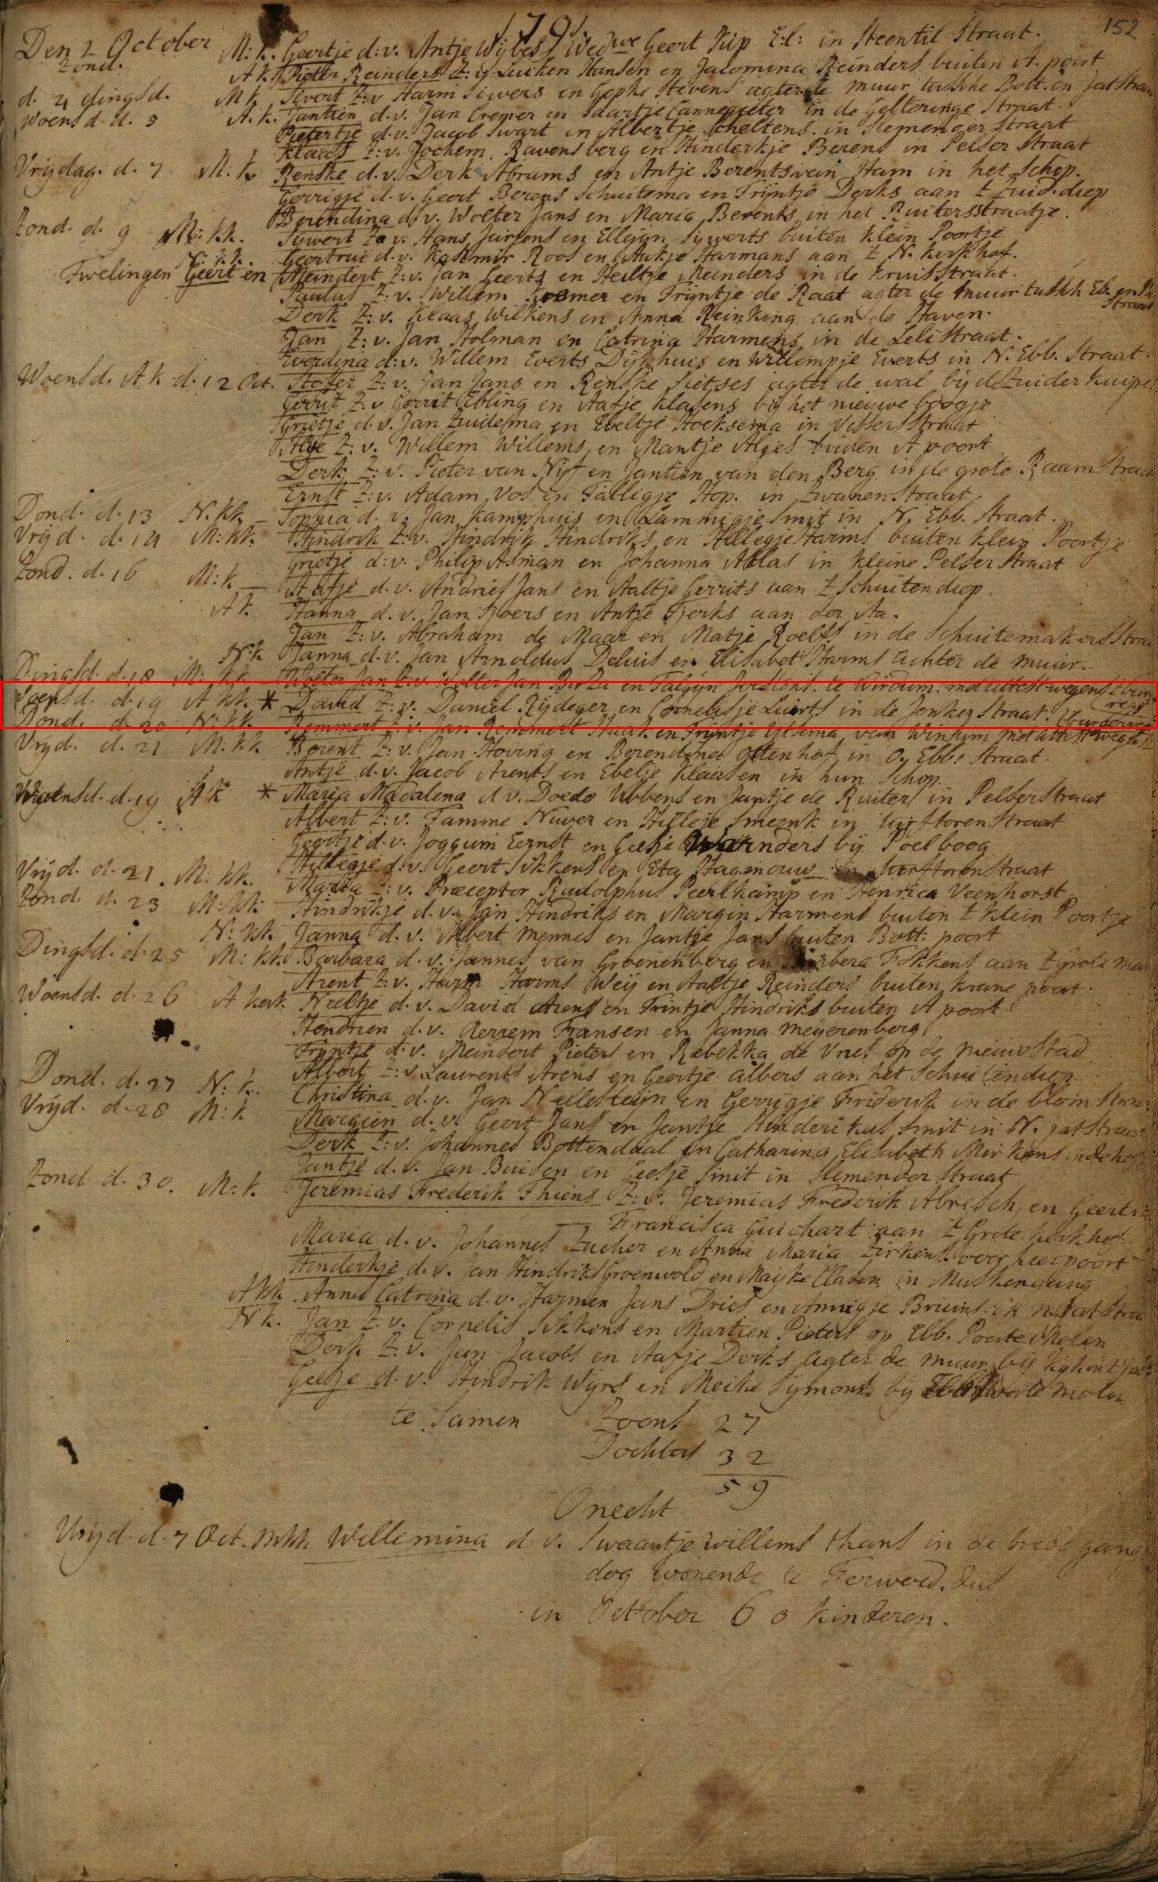 1791
152
Den 2 October M: k. Geertje d: v. Antje Wijbes Wedwe Geert Kip El: in Steentil Straat.
Zond. A k Pieter Reinders Z: v Lucken Hansen en Jacomina Reinders buiten A. poort
d. 4 dingsd. M k Sivert Z: v Harm Siwers en Gepke Stevens agter de muur tussche Bott. en Jat Straat
Woensd. d. 5 A. k. Jantien d. v. Jan Cremer en Saartje Cannegieter in de Gelkeringe Straat
Pietertje d. v. Jacob Swart in Albertje Scheltens in Slemender Straat
Klaass Z: v. Jochem Ravensberg en Hinderkje Berens in Pelser Straat
Vrijdag. d. 7 M. k Renske d. v. Derk Abrams en Antje Berents van Ham in het Schip.
Gerrigje d. v. Geert Berens Schuitema en Trijntje Derks aan t Zuid. diep
Berendina d. v. Wolter Jans en Maria Berents in het Ruitersstraatje.
Zond. d. 9 M: kk. Sijwert Z: v. Hans Jurjens en Ellegijn Sijwerts buiten klein Poortje
Geertrui d. v. Kasimir Roos en Aukje Harmans aan t N. kerkhof.
Twelingen Geert en Meindert Z: v. Jan Geerts en Heiltje Meinders in de kruis Straat.
Paulus Z: v. Willem Roemer en Trijntje de Raat agter de muur tussch Eb. en
Straat
Derk Z: v. Klaas Wilkens en Anna Reinking aan de Haven.
Jan Z: v. Jan Holman en Catrina Harmens in de Leli Straat.
Everdina d: v. Willem Everts Dijkhuis en Willempje Everts in N. Ebb. Straat.
Woensd. A k d. 12 Oct. Stoffer Z: v. Jan Jans en Renske Sietses agter de wal bij de Zuider kuipe
Gerrit Z: v Gerrit Ebling en Aafje Klasens bij het nieuwe boogje
Grietje d. v. Jan Zuidema en Ebeltje Hoeksema in Visser Straat
Alje Z: v. Willem Willems en Mantje Aljes buiten A poort
Derk Z: v. Pieter van Nijf en Jantien van den Berg in de grote Raam Straat
Ernst Z: v. Adam Vos en Talligje Stop. in Zwanen Straat
Dond. d. 13 N. kk Sophia d. v. Jan Kamphuis en Lammigje Smit in N. Ebb. Straat.
Vrijd. d. 14 M: kk. Hindrik Z: v. Hindrik Hindriks en Hillegje Harms buiten klein Poortje
Grietje d: v. Philip Asman en Johanna Atlas in kleine Pelser Straat
Zond. d. 16 M: k Aafje d. v. Andries Jans en Aaltje Gerrits aan t Schuitendiep.
A k. Hanna d. v. Jan Sjoers en Antje Tjerks aan der Aa.
Jan Z: v. Abraham de Maar en Matje Roelfs in de Schuitemakers Straat
N: k Hanna d. v. Jan Arnoldus Delius en Elisabet Harms achter de muur.
Dingsd. d. 18 M: kk Wolter Jan Z: v. Wolter Jan en te Wirdum. met attest wegens t burger
regt
Woensd. d. 19 A kk * David Z: v. Daniel Rijdeger en Cornelisje Luirts in de Jonker Straat.
Dond. d. 20 N: kk Remmert Z: v. Jan Remmert Huisk en Trijntje van Winsum met attest wegens
Vrijd. d. 21 M: kk Berent Z: v. Jan Hoving en Berendina Ottenhof in O. Ebb: Straat.
Antje d. v. Jacob Arents en Ebeltje Klaasen in hun Schip.
Woensd. d. 19 A k * Maria Madalena d. v. Doedo Ubbens en Jantje de Ruiter in Pelser Straat
Albert Z: v. Tamme Nuver en Hilletje Smeenk in Turftoren Straat
Geertje d: v. Joggum Ernst en Geesje Warnders bij Poelboog
Hillegje d: v. Geert Sikkens en Etta Hagenouw in turftoren Straat
Vrijd. d. 21. M: kk. Maria d: v. Præceptor Rudolphus Peerlkamp en Henrica Veenhorst.
Zond. d. 23 M: kk. Hindrikje d. v. Jan Hindriks en Margin Harmens buiten t klein Poortje
N: kk. Janna d. v. Albert Mennes en Jantje Jans buiten Bott: poort
Dingsd. d. 25 M: kk Barbara d. v. Jannes van Groenenberg en Fokkens aan t grote
Arent Z: v. Harm Harms Weij en Aaltje Reinders buiten krane poort.
Woensd. d. 26 A kerk Neeltje d. v. David Arens en Trintje Hindriks buiten A poort
Hendrien d. v. Herrem Fransen en Janna Meijerenberg
Trintje d: v. Meindert Pieters en Rebekka de Vries op de nieuwstad
Albert Z: v Laurents Arens en Geertje albers aan het Schuitendiep
Dond. d. 27 N: k. Christina d. v. Jan Nellesteijn en Gerrigje Friderik in de blom Straat
Vrijd. d. 28 M: k Margien d. v. Geert Jans en Jantje Hinderikus Smit in N. jat Straat
Derk Z: v. Johannes Bottendaal en Catharina Elisabeth Mirkens in de hof
Jantje d. v. Jan Buisen en Geesje Smit in Slemender Straat
Zond. d. 30. M: k. Jeremias Frederik Thiens Z: v. Jeremias Frederik Abresch, en Geertr
Francisca Guichart aan t Grote kerkhof.
Maria d. v. Johannes Zucher en Anna Maria Zirkens voor heerpoort
Hinderkje d. v. Jan Hindriks Groenwold en Maijke Clasen in Mussengang
A kk Anna Catrina d. v. Harmen Jans Dries en Annigje Bruins in N. Jat Straat
N k. Jan Z. v. Cornelis Sikkens en Martien Pieters op Ebb. Poorte Molen
Derk Z: v. Jan Jacobs en Aafje Derks agter de muur bij ligknt
Geesje d. v. Hindrik Wijrs en Meike Sijmons bij Ebb poorte molen
te Samen Zoons 27
Dochters 32
59
Onecht
Vrijd. d. 7 Oct. M kk Willemina d. v. Swaantje willems thans in de brede gang
dog wonende te Ferwerd. dus
in October 60 kinderen.